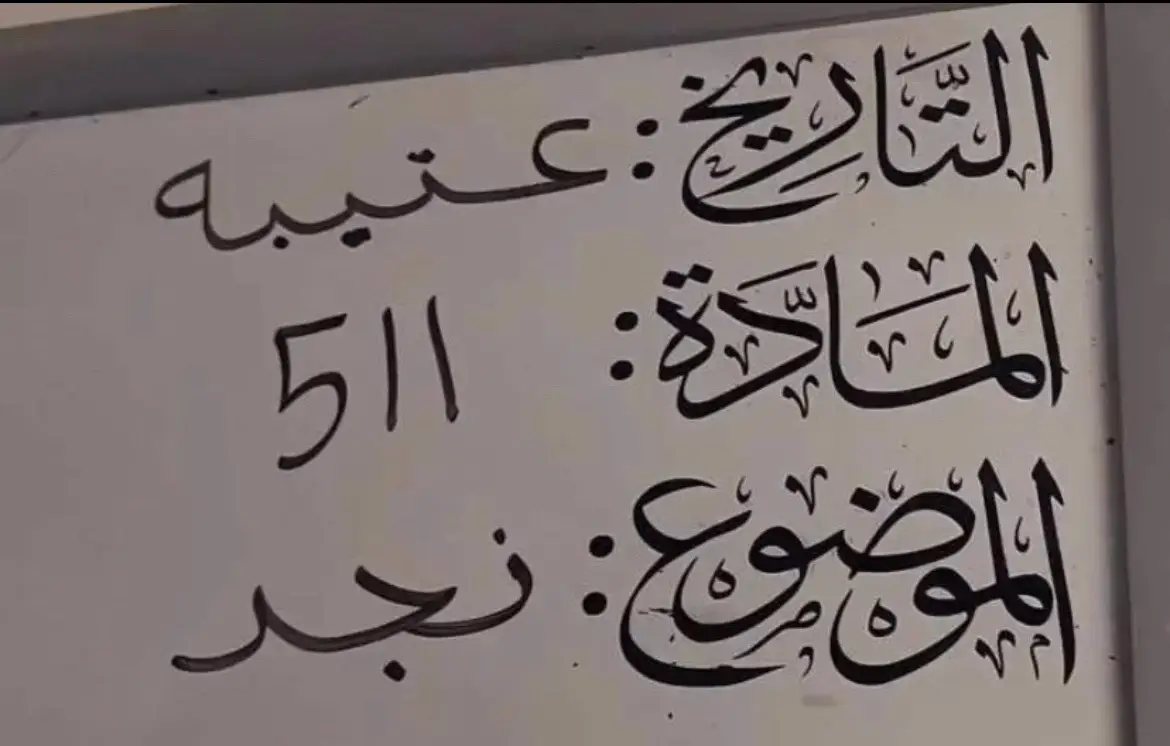 التَّارِيخ: عتيبه
المَادَّة: 511
الموضوع: نجد